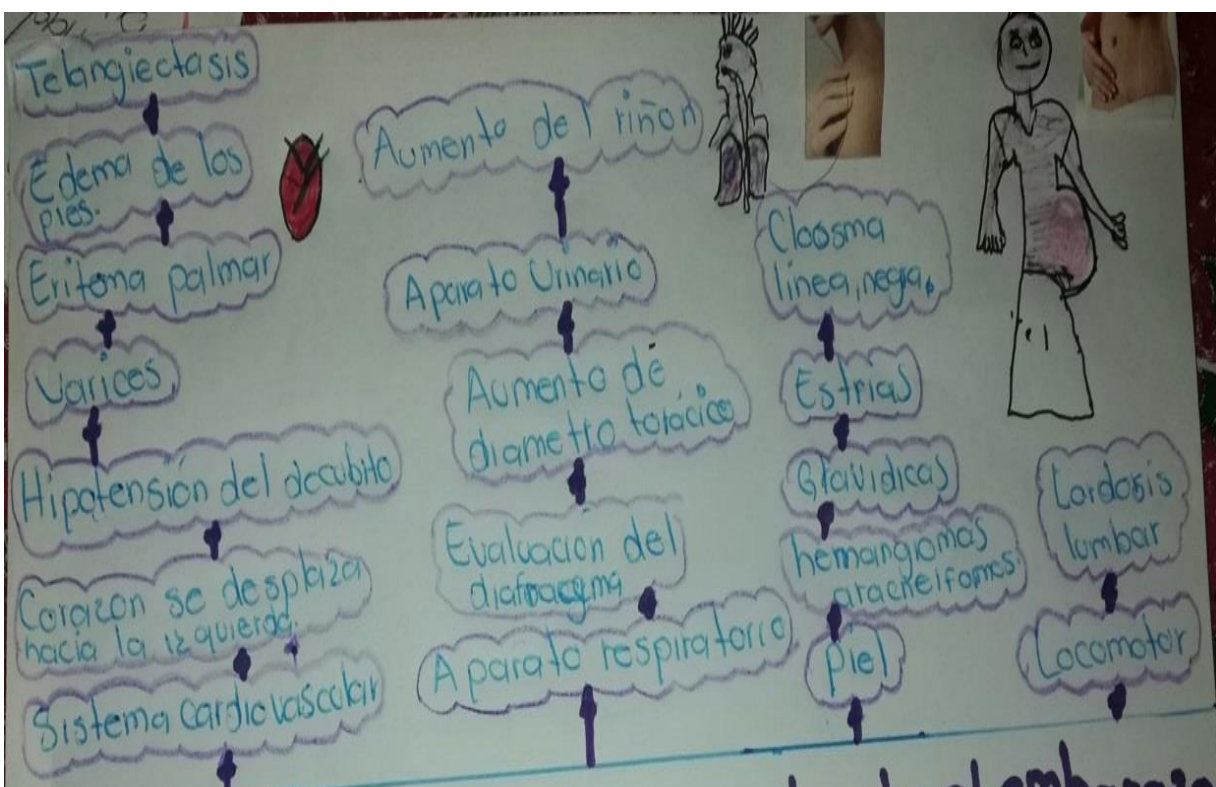 Telangiectasis
Edema de los
pies.
Eritema palmar
Varices
Hipotensión del decubito
Corazon se desplaza
hacia la izquierda.
Sistema cardiovascular
Aumento del riñon
Aparato Urinario
Aumento de
diametro torácico
Evaluacion del
diafragma
Aparato respiratorio
Cloosma
linea, negra.
Estrias
Gravidicas
hemangiomas
aracneifomes.
Piel
Lordosis
lumbar
Locomotor
embarazo